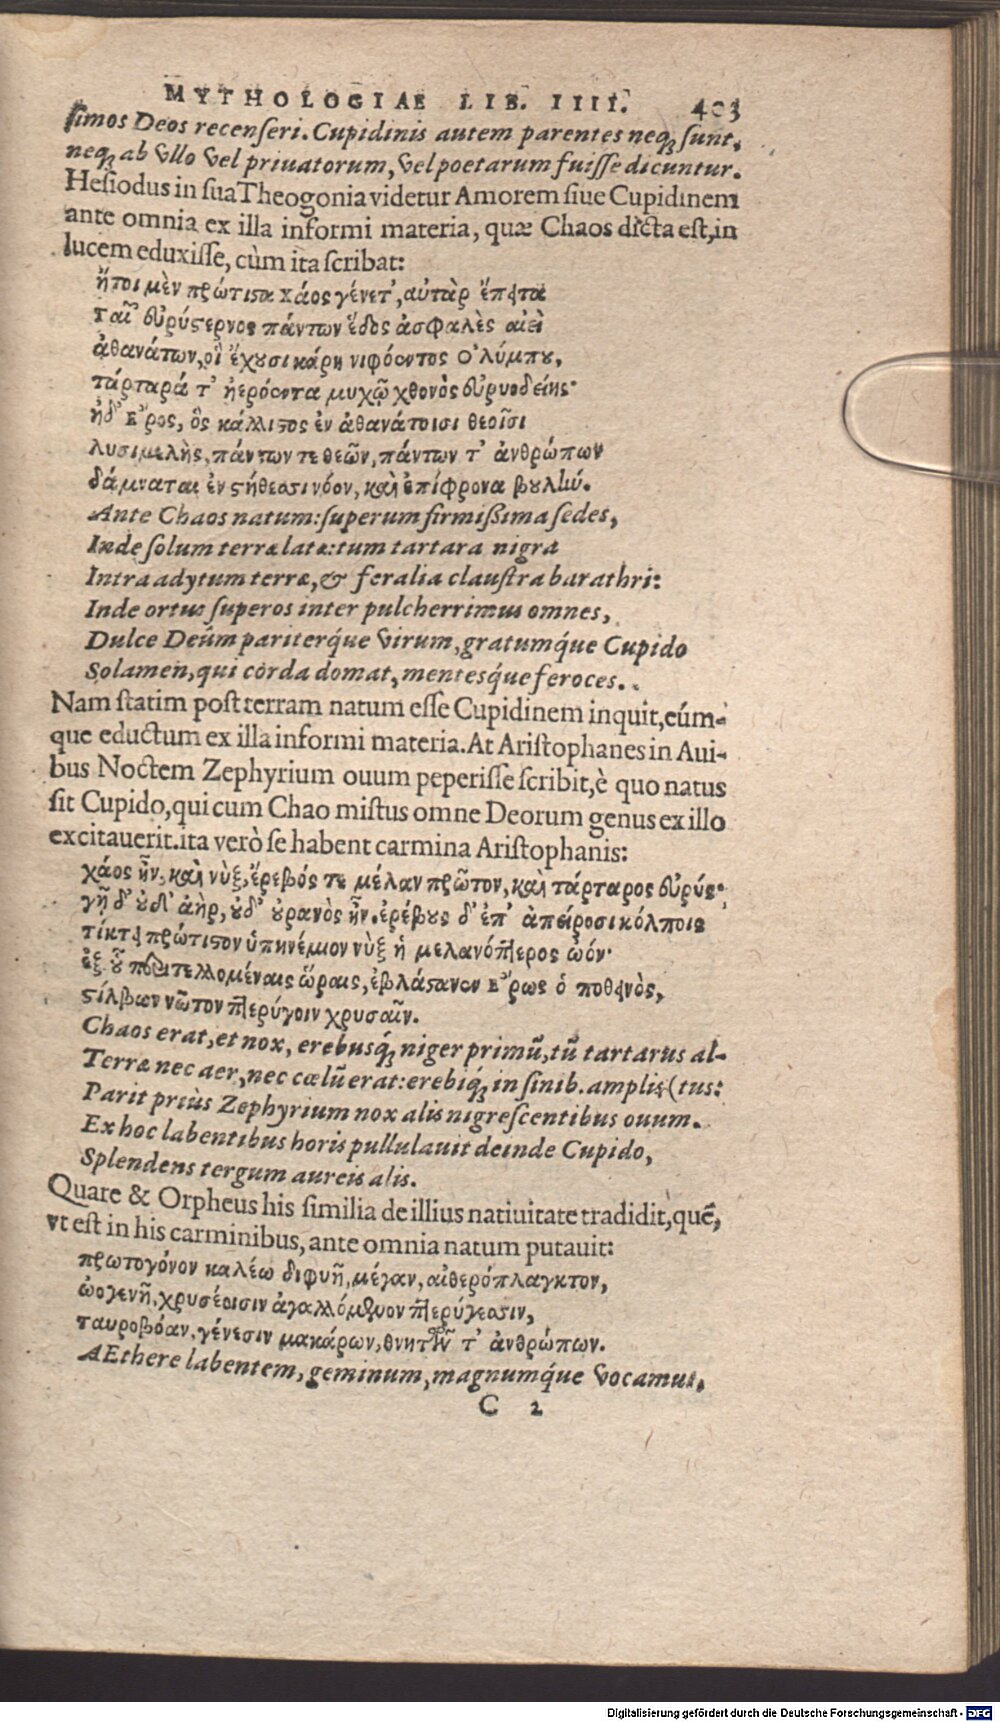 MYTHOLOGIAE LIB. IIII. 403
ſimos Deos recenſeri. Cupidinis autem parentes neq; ſunt,
neq; ab vllo vel priuatorum, vel poetarum fuiſſe dicuntur.
Heſiodus in ſua Theogonia videtur Amorem ſiue Cupidinem
ante omnia ex illa informi materia, quæ Chaos dicta eſt, in
lucem eduxiſſe, cùm ita ſcribat:
ἤτοι μὲν πρώτιστα χάος γένετ', αὐτὰρ ἔπειτα
γαῖ' εὐρύστερνος πάντων ἕδος ἀσφαλὲς αἰεὶ
ἀθανάτων, οἳ ἔχουσι κάρη νιφόεντος Ὀλύμπου,
τάρταρά τ' ἠερόεντα μυχῷ χθονὸς εὐρυοδείης·
ἠδ' Ἔρος, ὃς κάλλιστος ἐν ἀθανάτοισι θεοῖσι
λυσιμελὴς, πάντων τε θεῶν, πάντων τ' ἀνθρώπων
δάμναται ἐν στήθεσσι νόον, καὶ ἐπίφρονα βουλήν.
Ante Chaos natum: ſuperum firmißima ſedes,
Inde ſolum terræ latæ: tum tartara nigra
Intra adytum terræ, & feralia clauſtra barathri:
Inde ortus ſuperos inter pulcherrimus omnes,
Dulce Deûm pariterq́ue virum, gratumq́ue Cupido
Solamen, qui corda domat, mentesq́ue feroces.
Nam ſtatim poſt terram natum eſſe Cupidinem inquit, eúm-
que eductum ex illa informi materia. At Ariſtophanes in Aui-
bus Noctem Zephyrium ouum peperiſſe ſcribit, è quo natus
ſit Cupido, qui cum Chao miſtus omne Deorum genus ex illo
excitauerit. ita verò ſe habent carmina Ariſtophanis:
χάος ἦν, καὶ νὺξ, ἔρεβός τε μέλαν πρῶτον, καὶ τάρταρος εὐρύς·
γῆ δ' οὐδ' ἀὴρ, οὐδ' οὐρανὸς ἦν. ἐρέβους δ' ἐπ' ἀπείροσι κόλποις
τίκτει πρώτιστον ὑπηνέμιον νὺξ ἡ μελανόπτερος ὠόν·
ἐξ οὗ περιτελλομέναις ὥραις, ἐβλάστανεν Ἔρως ὁ ποθεινὸς,
στίλβων νῶτον πτερύγοιν χρυσαῖν.
Chaos erat, et nox, erebusq́; niger primū, tū tartarus al-
Terra nec aer, nec cœlū erat: erebiq́; in ſinib. amplis (tus:
Parit priùs Zephyrium nox alis nigreſcentibus ouum.
Ex hoc labentibus horis pullulauit deinde Cupido,
Splendens tergum aureis alis.
Quare & Orpheus his ſimilia de illius natiuitate tradidit, quē,
vt eſt in his carminibus, ante omnia natum putauit:
πρωτογόνον καλέω διφυῆ, μέγαν, αἰθερόπλαγκτον,
ὠογενῆ, χρυσέοισιν ἀγαλλόμενον πτερύγεσσιν,
ταυροβόαν, γένεσιν μακάρων, θνητῶν τ' ἀνθρώπων.
AEthere labentem, geminum, magnumq́ue vocamus,
C 2
Digitalisierung gefördert durch die Deutsche Forschungsgemeinschaft - DFG